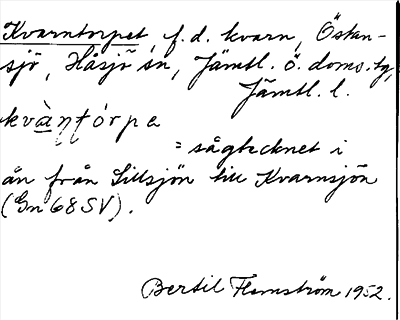 Kvarntorpet, f.d. kvarn, Östan-
sjö, Håsjö sn, Jämtl. ö. doms.tg,
Jämtl. l.
kvàṇtórpa
= sågtecknet i
ån från Lillsjön till Kvarnsjön
(Gn 68 SV).
Bertil Flemström 1952.